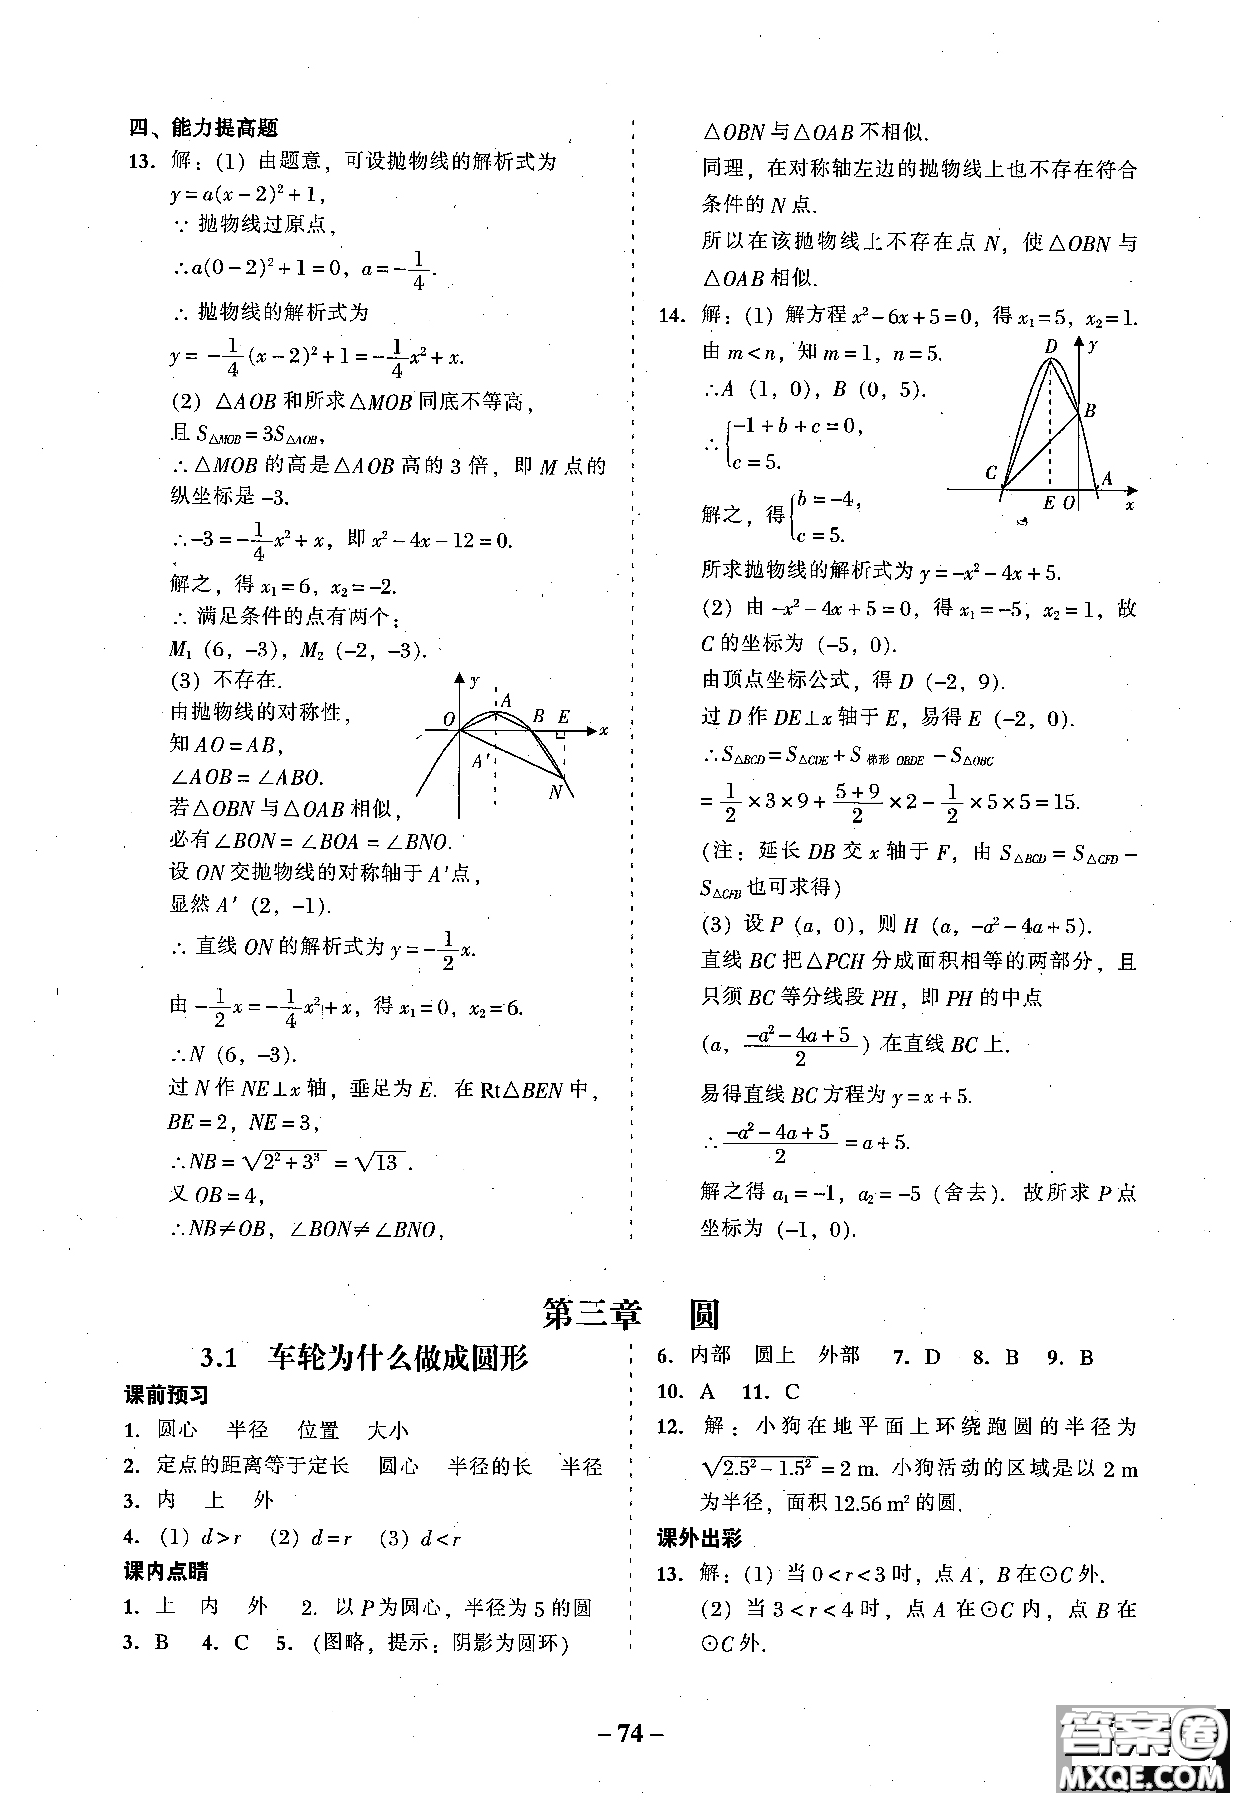 四、能力提高题
13. 解：(1) 由题意，可设抛物线的解析式为
y=a(x-2)²+1，
∵ 抛物线过原点，
∴a(0-2)²+1=0，a=-1/4.
∴ 抛物线的解析式为
y= -1/4(x-2)²+1=-1/4x²+x.
(2) △AOB 和所求△MOB 同底不等高，
且 S△MOB=3S△AOB，
∴△MOB 的高是△AOB 高的 3 倍，即 M 点的
纵坐标是 -3.
∴-3=-1/4x²+x，即 x²-4x-12=0.
解之，得 x₁=6，x₂=-2.
∴ 满足条件的点有两个：
M₁ (6，-3)，M₂ (-2，-3).
(3) 不存在.
由抛物线的对称性，
知 AO=AB，
∠AOB=∠ABO.
若△OBN 与△OAB 相似，
必有∠BON=∠BOA=∠BNO.
设 ON 交抛物线的对称轴于 A'点，
显然 A' (2，-1).
∴ 直线 ON 的解析式为 y=-1/2x.
由 -1/2x=-1/4x²+x，得 x₁=0，x₂=6.
∴N (6，-3).
过 N 作 NE⊥x 轴，垂足为 E. 在 Rt△BEN 中，
BE=2，NE=3，
∴NB=√(2²+3³)=√13.
又 OB=4，
∴NB≠OB，∠BON≠∠BNO，
y
A
O B E x
A'
N
△OBN 与△OAB 不相似.
同理，在对称轴左边的抛物线上也不存在符合
条件的 N 点.
所以在该抛物线上不存在点 N，使△OBN 与
△OAB 相似.
14. 解：(1) 解方程 x²-6x+5=0，得 x₁=5，x₂=1.
由 m<n，知 m=1，n=5.
∴A (1，0)，B (0，5).
∴{-1+b+c=0，
c=5.
解之，得{b=-4，
c=5.
D y
B
C A
E O x
所求抛物线的解析式为 y=-x²-4x+5.
(2) 由 -x²-4x+5=0，得 x₁=-5，x₂=1，故
C 的坐标为 (-5，0).
由顶点坐标公式，得 D (-2，9).
过 D 作 DE⊥x 轴于 E，易得 E (-2，0).
∴S△BCD=S△CDE+S梯形 OBDE-S△OBC
=1/2×3×9+(5+9)/2×2-1/2×5×5=15.
(注：延长 DB 交 x 轴于 F，由 S△BCD=S△CFD-
S△CFB也可求得)
(3) 设 P (a，0)，则 H (a，-a²-4a+5).
直线 BC 把△PCH 分成面积相等的两部分，且
只须 BC 等分线段 PH，即 PH 的中点
(a，(-a²-4a+5)/2) 在直线 BC 上.
易得直线 BC 方程为 y=x+5.
∴(-a²-4a+5)/2=a+5.
解之得 a₁=-1，a₂=-5 (舍去). 故所求 P 点
坐标为 (-1，0).
第三章 圆
3.1 车轮为什么做成圆形
课前预习
1. 圆心 半径 位置 大小
2. 定点的距离等于定长 圆心 半径的长 半径
3. 内 上 外
4. (1) d>r (2) d=r (3) d<r
课内点睛
1. 上 内 外 2. 以 P 为圆心，半径为 5 的圆
3. B 4. C 5. (图略，提示：阴影为圆环)
6. 内部 圆上 外部 7. D 8. B 9. B
10. A 11. C
12. 解：小狗在地平面上环绕跑圆的半径为
√(2.5²-1.5²)=2 m. 小狗活动的区域是以 2 m
为半径，面积 12.56 m² 的圆.
课外出彩
13. 解：(1) 当 0<r<3 时，点 A，B 在⊙C 外.
(2) 当 3<r<4 时，点 A 在⊙C 内，点 B 在
⊙C 外.
- 74 -
答案圈
MXQE.COM